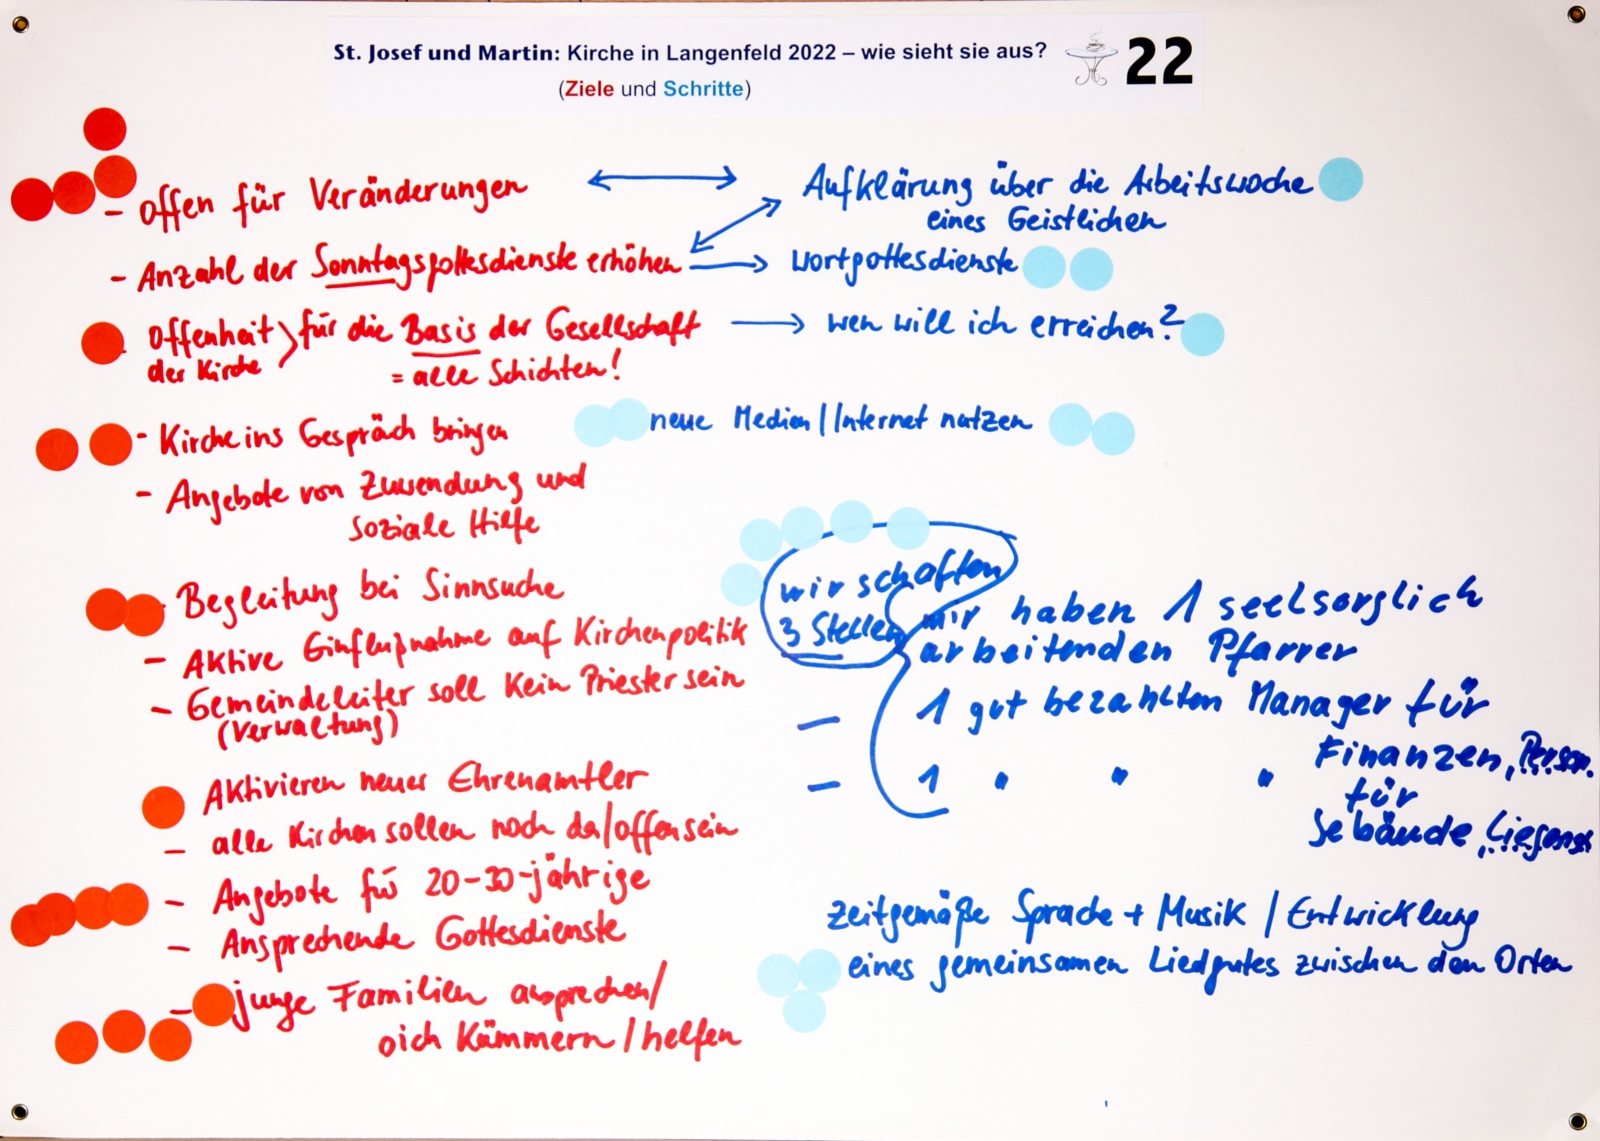 St. Josef und Martin: Kirche in Langenfeld 2022 – wie sieht sie aus?
22
(Ziele und Schritte)
- offen für Veränderungen
- Anzahl der Sonntagsgottesdienste erhöhen
Offenheit
der Kirche
für die Basis der Gesellschaft
= alle Schichten!
- Kirche ins Gespräch bringen
- Angebote von Zuwendung und
soziale Hilfe
Begleitung bei Sinnsuche
- Aktive Einflußnahme auf Kirchenpolitik
- Gemeindeleiter soll kein Priester sein
(Verwaltung)
Aktivieren neuer Ehrenamtler
- alle Kirchen sollen noch da/offen sein
- Angebote für 20-30-jährige
- Ansprechende Gottesdienste
- junge Familien ansprechen/
sich kümmern / helfen
Aufklärung über die Arbeitswoche
eines Geistlichen
Wortgottesdienste
wen will ich erreichen?
neue Medien/Internet nutzen
wir schaffen
3 Stellen
wir haben 1 seelsorglich
arbeitenden Pfarrer
- 1 gut bezahlten Manager für
Finanzen, Person.
- 1 " " "
für
Gebäude, Liegensch
zeitgemäße Sprache + Musik / Entwicklung
eines gemeinsamen Liedgutes zwischen den Orten